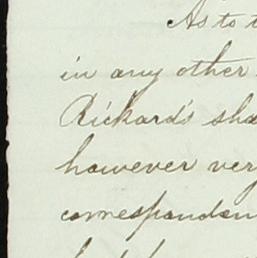 As to t
in any other
Rickard's sha
however very
correspondен